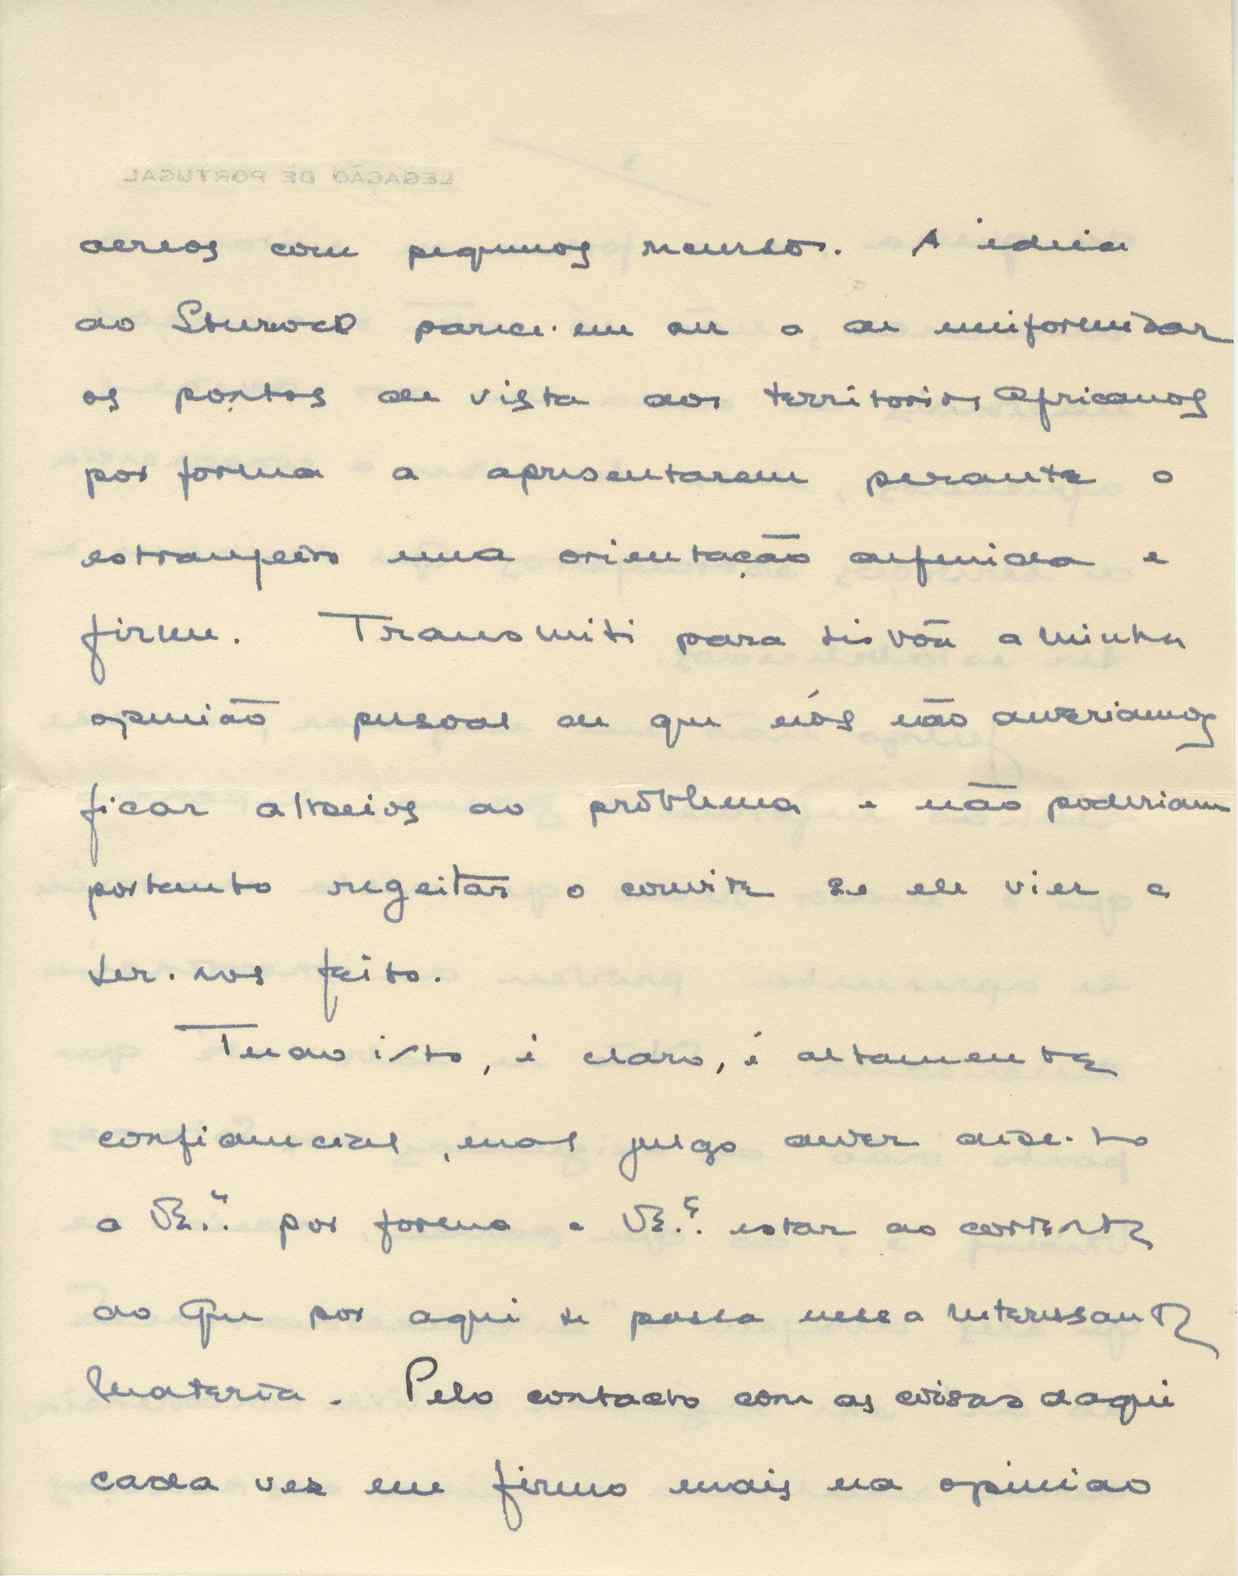 aereos com pequenos recursos. A ideia
do Sturrock parece-me ser a de uniformizar
os pontos de vista dos territorios Africanos
por forma a apresentarem perante o
estrangeiro uma orientação defenida e
firme. Transmiti para Lisbôa a minha
openião pessoal de que nós não deveriamos
ficar alheios ao problema e não poderiamos
portanto regeitar o convite se ele vier a
ser-nos feito.
Tudo isto, é claro, é altamente
confidencial, mas julgo dever dize-lo
a VE.ª por forma a VE.ª estar ao corrente
do que por aqui se passa nessa interessante
materia. Pelo contacto com as coisas daqui
cada vez me firmo mais na opinião
LEGAÇÃO DE PORTUGAL